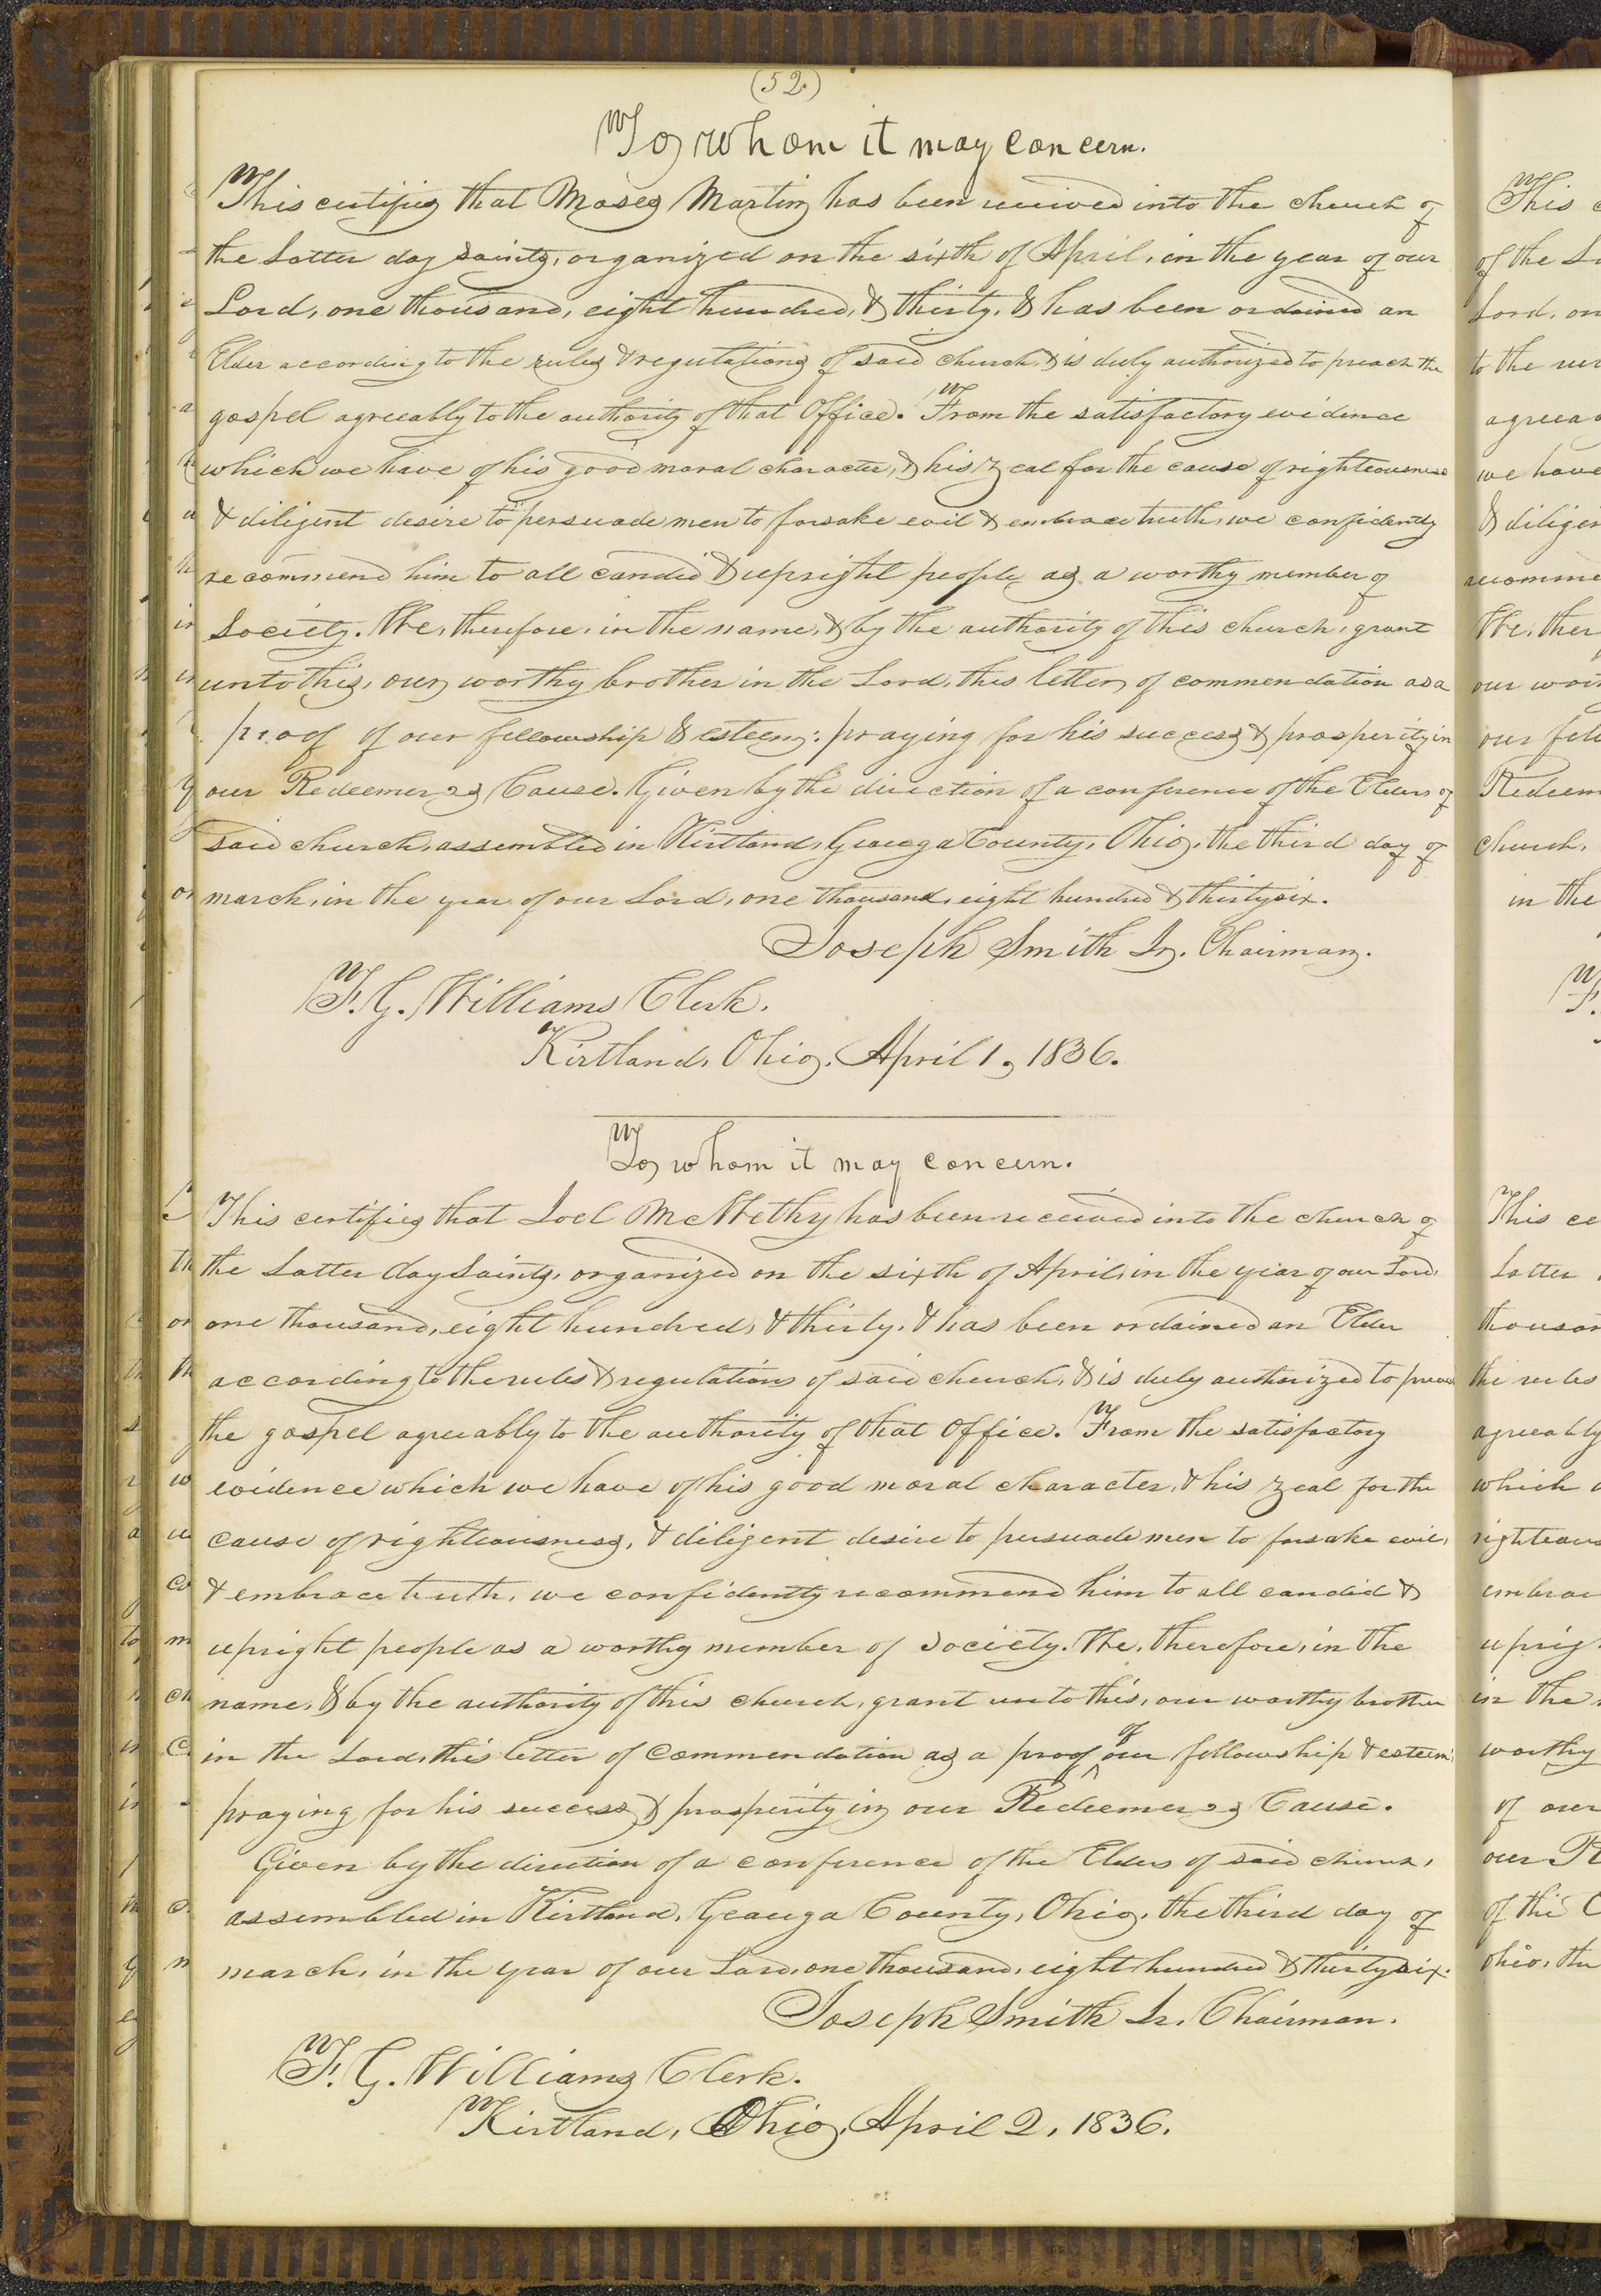 (52)
To whom it may concern.
This certifies that Moses Martin has been received into the church of
the Latter day saints, organized on the sixth of April, in the year of our
Lord, one thousand, eight hundred, & thirty, & has been ordained an
Elder according to the rules & regulations of said church, & is duly authorized to preach the
gospel agreeably to the authority of that Office. From the satisfactory evidence
which we have of his good moral character, & his zeal for the cause of righteousness
& diligent desire to persuade men to forsake evil & embrace truth, we confidently
recommend him to all candid & upright people as a worthy member of
Society. We, therefore, in the name, & by the authority of this church, grant
unto this, our worthy brother in the Lord, this letter of commendation as a
proof of our fellowship & esteem: praying for his success & prosperity in
our Redeemer's Cause. Given by the direction of a conference of the Elders of
said church, assembled in Kirtland, Geauga County, Ohio, the third day of
march, in the year of our Lord, one thousand, eight hundred & thirty six.
Joseph Smith Jr. Chairman.
F. G. Williams Clerk.
Kirtland, Ohio, April 1, 1836.
To whom it may concern.
This certifies that Joel McWethy has been received into the church of
the Latter day Saints, organized on the sixth of April, in the year of our Lord,
one thousand, eight hundred, & thirty, & has been ordained an Elder
according to the rules & regulations of said church, & is duly authorized to preach
the gospel agreeably to the authority of that Office. From the satisfactory
evidence which we have of his good moral character, & his zeal for the
cause of righteousness, & diligent desire to persuade men to forsake evil,
& embrace truth, we confidently recommend him to all candid &
upright people as a worthy member of Society. We, therefore, in the
name, & by the authority of this church, grant unto this, our worthy brother
in the Lord, this letter of commendation as a proof of our fellowship & esteem:
praying for his success & prosperity in our Redeemer's Cause.
Given by the direction of a conference of the Elders of said church,
assembled in Kirtland, Geauga County, Ohio, the third day of
march, in the year of our Lord, one thousand, eight hundred & thirty six.
Joseph Smith Jr. Chairman.
F. G. Williams Clerk.
Kirtland, Ohio, April 2, 1836.